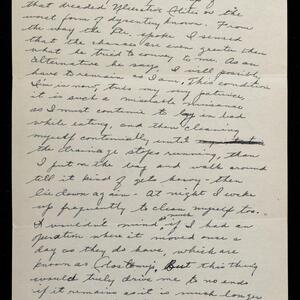 that dreaded Ulcerative Colitis or the
worst form of dysentery known. From
the way the Dr. spoke I sensed
that the chances are even greater than
what he tried to convey to me. As an
alternative he says I will possibly
have to remain as I am. This condition
I'm in now, tries my patience,
it is such a miserable nuisance
as I must continue to lay in bed
while eating, and then cleaning
myself continually until
the drainage stops running, then
I put on the bag and walk around
till it kind of gets heavy - then
lie down again. At night I wake
up frequently to clean myself too.
I wouldn't mind so much if I had an
operation where it moved once a
day as they do have, which are
known as Colostomy, But this thing
would truly drive me to no ends
if it remains as it is much longer